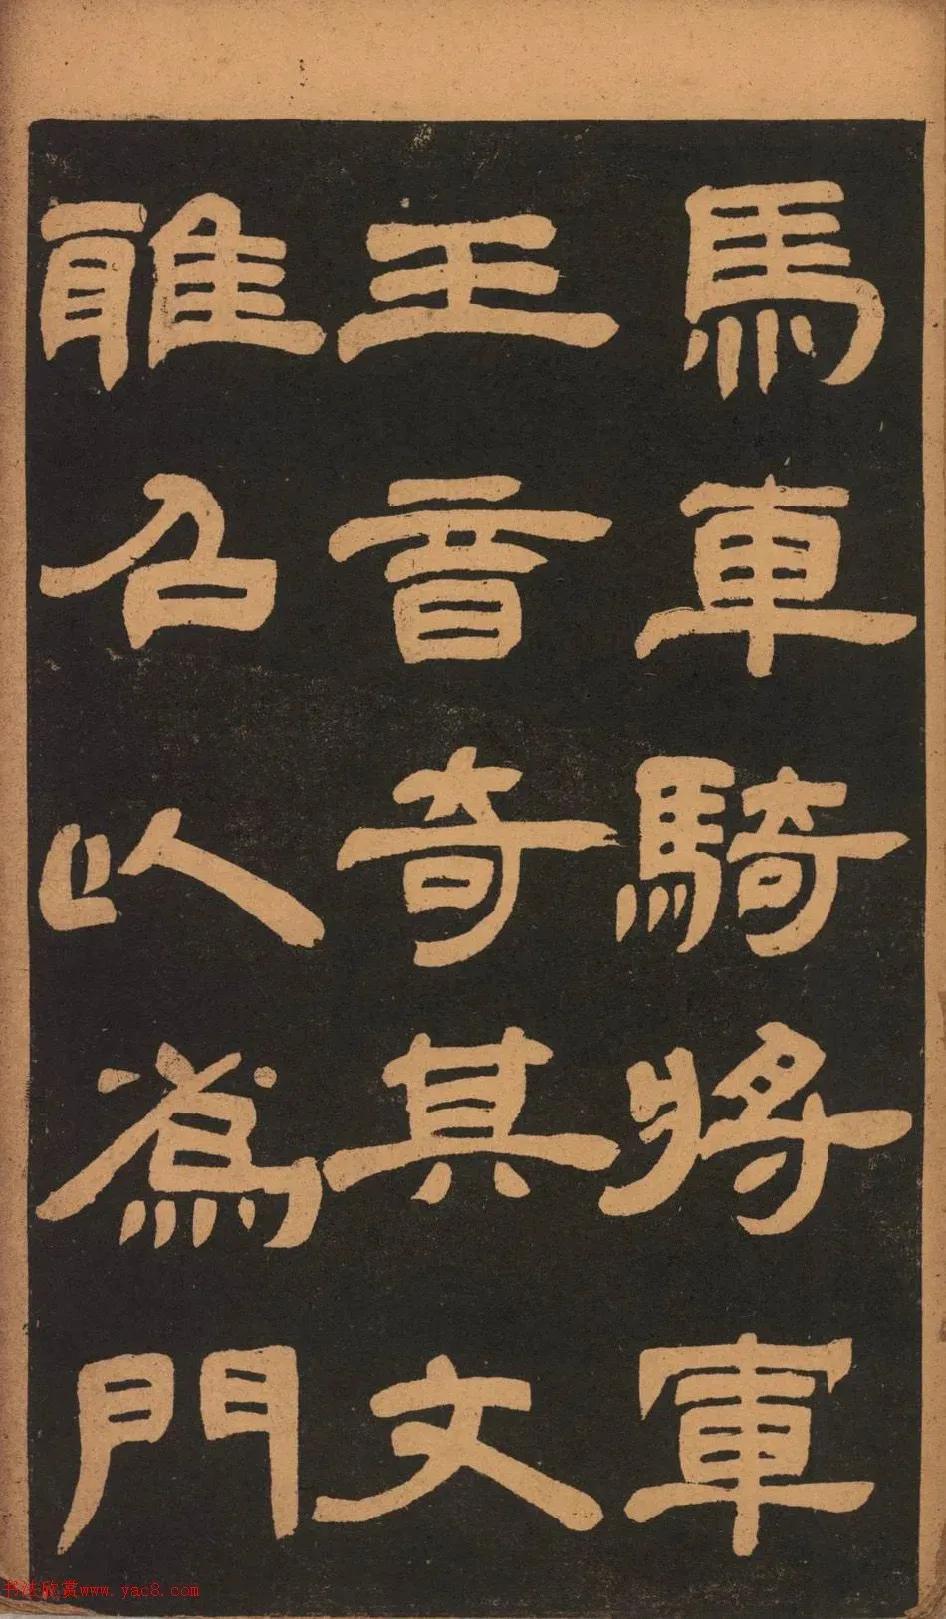 馬車騎將軍
王音奇其文
雅召以為門
书法欣赏www.yac8.com